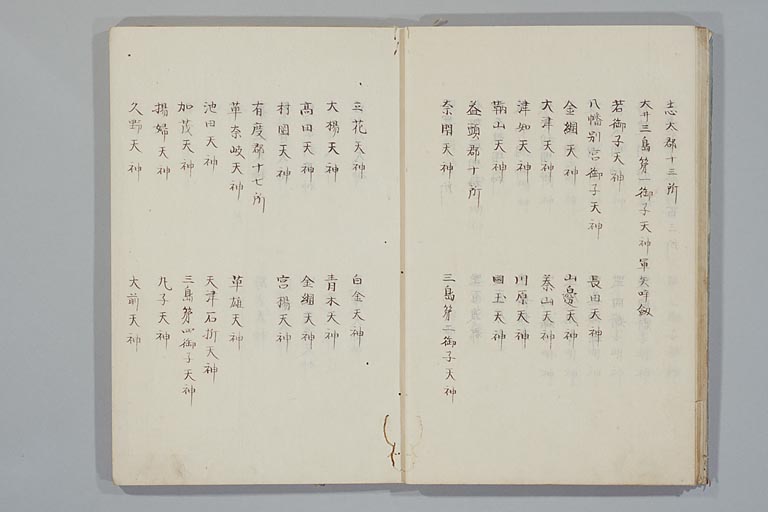 志太郡十三所
大井三島第一御子天神
若御子天神
八幡別宮御子天神 長田天神
金綱天神
大津天神 秦山天神
津如天神 田原天神
鞆山天神 國玉天神
益頭郡十所
奈閇天神 三島第二御子天神
三花天神 白金天神
大楊天神 青木天神
高田天神 金綱天神
村国天神 宮楊天神
有度郡十七所
草奈岐天神 草雄天神
池田天神 天津石折天神
加茂天神 三島第四御子天神
楊婦天神 丸子天神
久野天神 大前天神